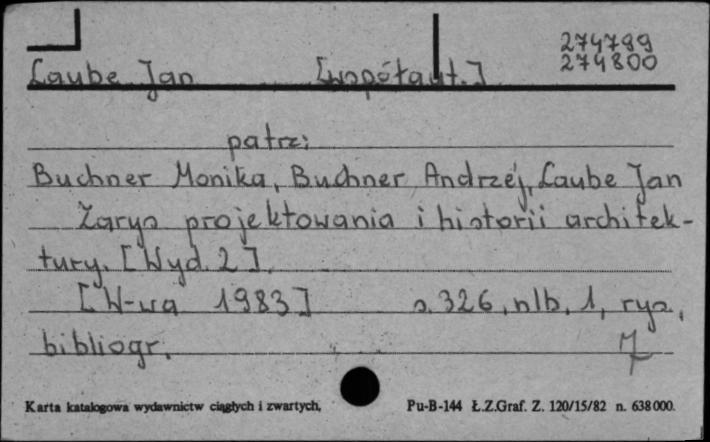 274799
274800
Laube Jan [współaut.]
patrz:
Buchner Monika, Buchner Andrzej, Laube Jan
Zarys projektowania i historii architek-
tury. [Wyd. 2].
[W-wa 1983] s. 326, nlb. 1, rys.,
bibliogr.
Karta katalogowa wydawnictw ciągłych i zwartych, Pu-B-144 Ł.Z.Graf. Z. 120/15/82 n. 638000.